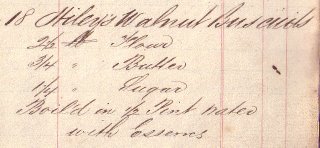 18 Hiley's Walnut Buscuits
2½ lb Flour
3/4 " Butter
1¼ " Sugar
Boild in ½ Pint Water
with Essence